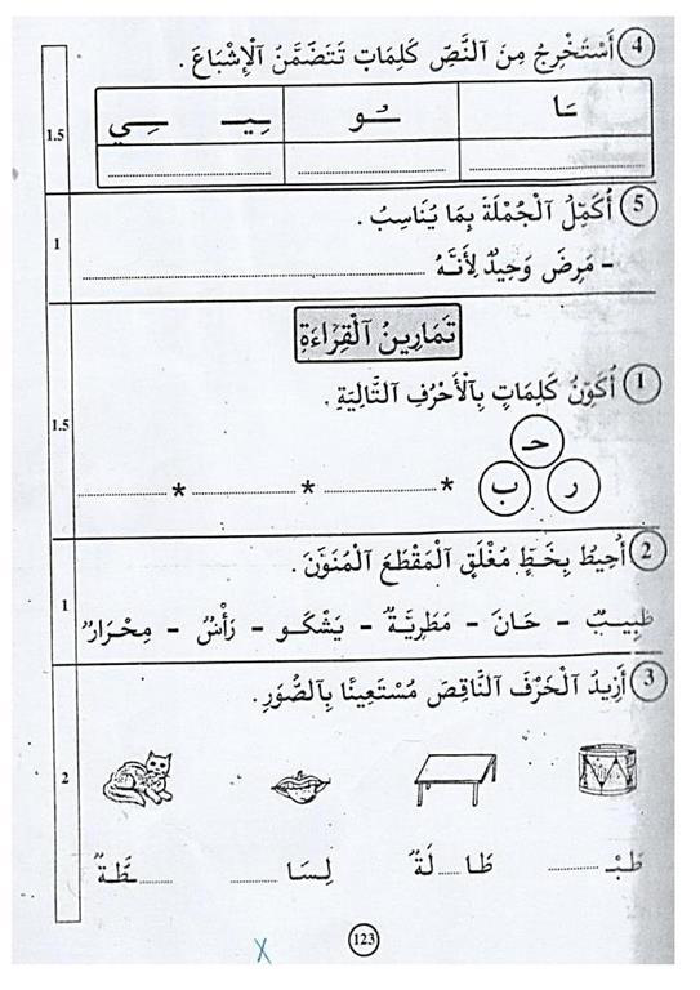 4 أَسْتَخْرِجُ مِنَ ٱلنَّصِّ كَلِمَاتٍ تَتَضَمَّنُ ٱلْإِشْبَاعَ .
ـَا ـُـو ـِيـ ـِي
1.5
5 أُكَمِّلُ ٱلْجُمْلَةَ بِمَا يُنَاسِبُ .
1
- مَرِضَ وَحِيدٌ لِأَنَّهُ ........................
تَمَارِينُ ٱلْقِرَاءَةِ
1 أُكَوِّنُ كَلِمَاتٍ بِٱلْأَحْرُفِ ٱلتَّالِيَةِ .
1.5
حـ
ر ب * ............ * ............ * ............
2 أُحِيطُ بِخَطٍّ مُغْلَقٍ ٱلْمَقْطَعَ ٱلْمُنَوَّنَ .
1
طَبِيبٌ - حَانَ - مَطَرِيَّةٌ - يَشْكُـو - رَأْسٌ - مِحْرَارٌ
3 أَزِيدُ ٱلْحَرْفَ ٱلنَّاقِصَ مُسْتَعِينًا بِٱلصُّوَرِ .
2
طَبْـ ........ طَا ....لَةٌ لِسَا ........ ........ـطَّةٌ
123
X